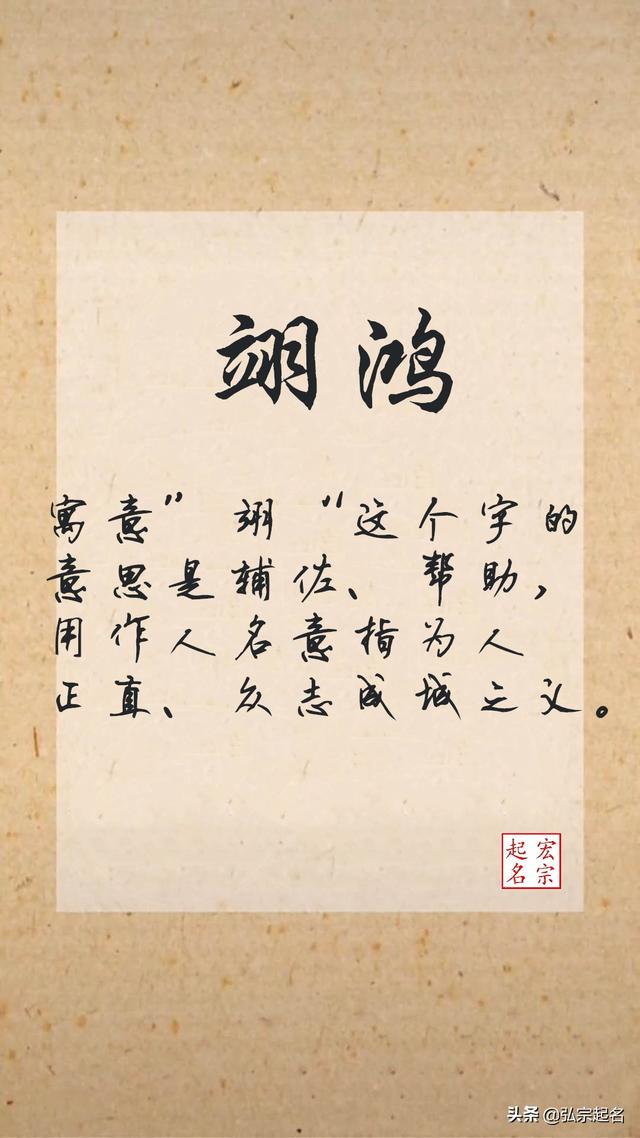 翊鸿
寓意”翊“这个字的
意思是辅佐、帮助，
用作人名意指为人
正直、众志成城之义。
宏宗起名
头条 @弘宗起名